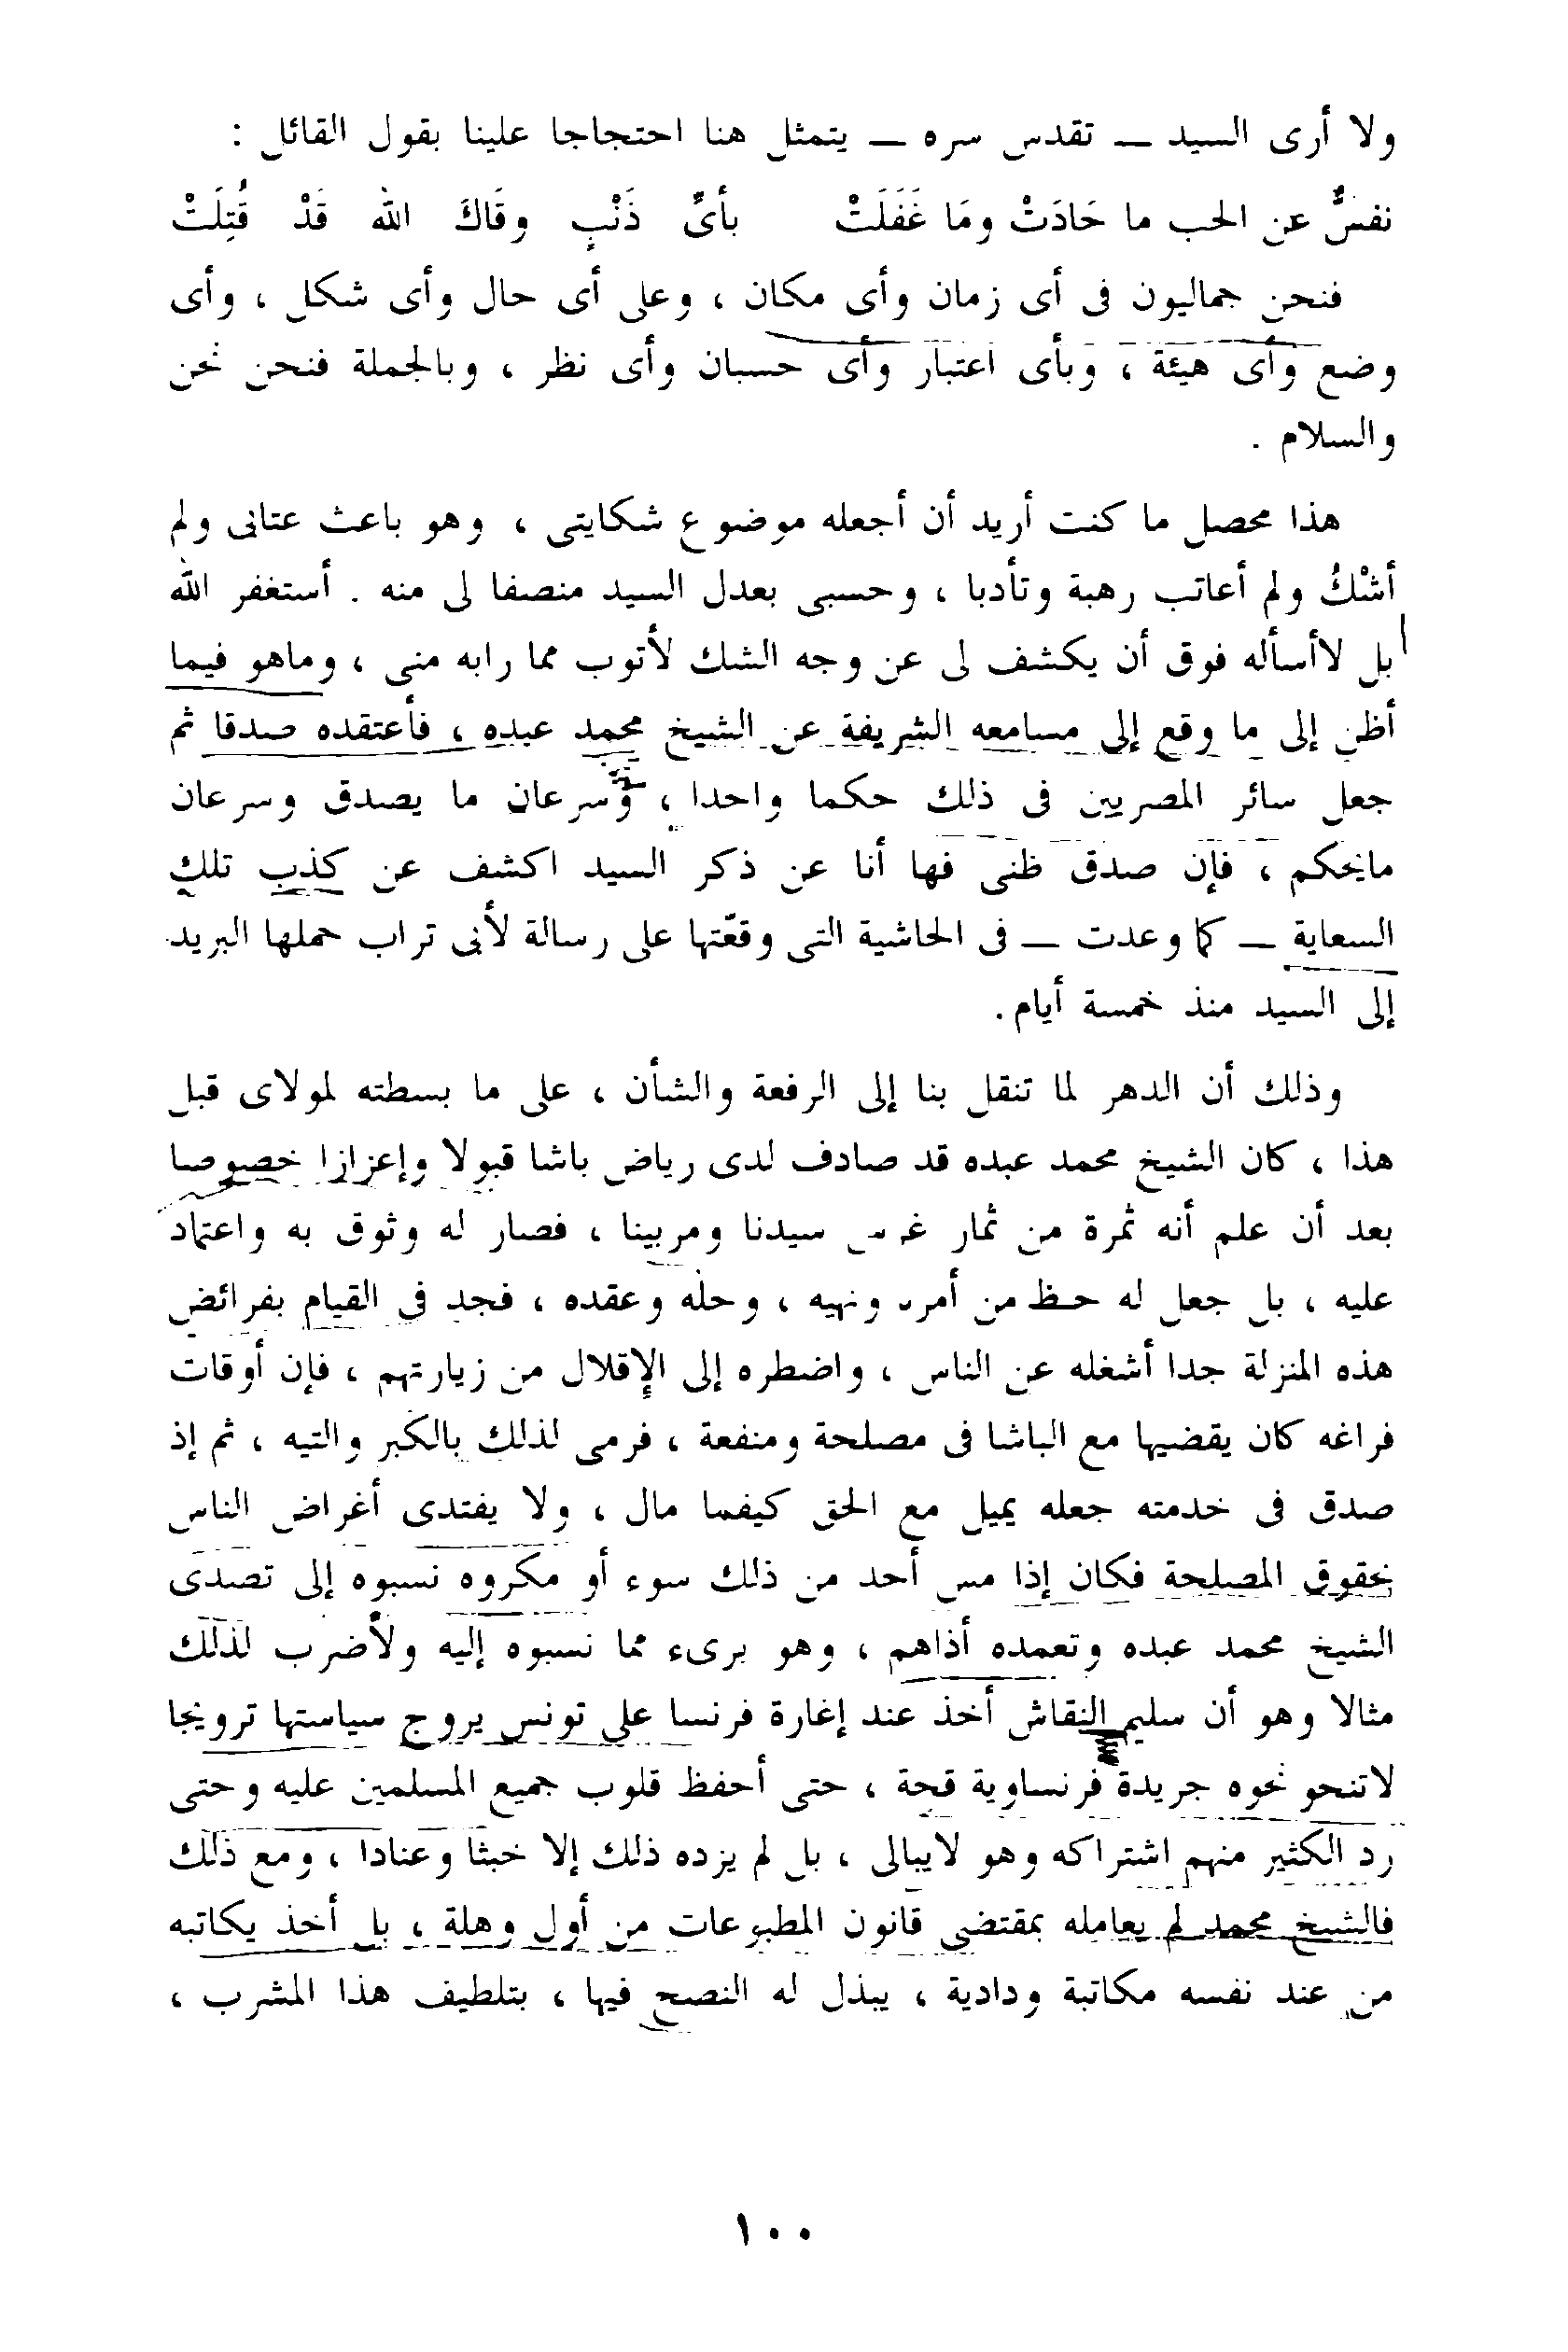 ولا أرى السيد — تقدس سره — يتمثل هنا احتجاجا علينا بقول القائل :
نفسٌ عن الحب ما حَادَتْ ومَا غَفَلَتْ بأىِّ ذَنْبٍ وقَاكَ الله قَدْ قُتِلَتْ
فنحن جماليون فى أى زمان وأى مكان ، وعلى أى حال وأى شكل ، وأى
وضع وأى هيئة ، وبأى اعتبار وأى حسبان وأى نظر ، وبالجملة فنحن نحن
والسلام .
هذا محصل ما كنت أريد أن أجعله موضوع شكايتى ، وهو باعث عتابى ولم
أشْكُ ولم أعاتب رهبة وتأدبا ، وحسبى بعدل السيد منصفا لى منه . أستغفر الله
بل لاأسأله فوق أن يكشف لى عن وجه الشك لأتوب مما رابه منى ، وماهو فيما
أظن إلى ما وقع إلى مسامعه الشريفة عن الشيخ محمد عبده ، فأعتقده صدقا ثم
جعل سائر المصريين فى ذلك حكما واحدا ، وسرعان ما يصدق وسرعان
مايحكم ، فإن صدق ظنى فها أنا عن ذكر السيد اكشف عن كذب تلك
السعاية — كما وعدت — فى الحاشية التى وقعّتها على رسالة لأبى تراب حملها البريد
إلى السيد منذ خمسة أيام .
وذلك أن الدهر لما تنقل بنا إلى الرفعة والشأن ، على ما بسطته لمولاى قبل
هذا ، كان الشيخ محمد عبده قد صادف لدى رياض باشا قبولا وإعزازا خصوصا
بعد أن علم أنه ثمرة من ثمار غرس سيدنا ومربينا ، فصار له وثوق به واعتماد
عليه ، بل جعل له حظ من أمره ونهيه ، وحله وعقده ، فجد فى القيام بفرائض
هذه المنزلة جدا أشغله عن الناس ، واضطره إلى الإقلال من زيارتهم ، فإن أوقات
فراغه كان يقضيها مع الباشا فى مصلحة ومنفعة ، فرمى لذلك بالكبر والتيه ، ثم إذ
صدق فى خدمته جعله يميل مع الحق كيفما مال ، ولا يفتدى أغراض الناس
بحقوق المصلحة فكان إذا مس أحد من ذلك سوء أو مكروه نسبوه إلى تصدى
الشيخ محمد عبده وتعمده أذاهم ، وهو برىء مما نسبوه إليه ولأضرب لذلك
مثالا وهو أن سليم النقاش أخذ عند إغارة فرنسا على تونس يروج سياستها ترويجا
لاتنحو نحوه جريدة فرنساوية قحة ، حتى أحفظ قلوب جميع المسلمين عليه وحتى
رد الكثير منهم اشتراكه وهو لايبالى ، بل لم يزده ذلك إلا خبثا وعنادا ، ومع ذلك
فالشيخ محمد لم يعامله بمقتضى قانون المطبوعات من أول وهلة ، بل أخذ يكاتبه
من عند نفسه مكاتبة ودادية ، يبذل له النصح فيها ، بتلطيف هذا المشرب ،
١٠٠